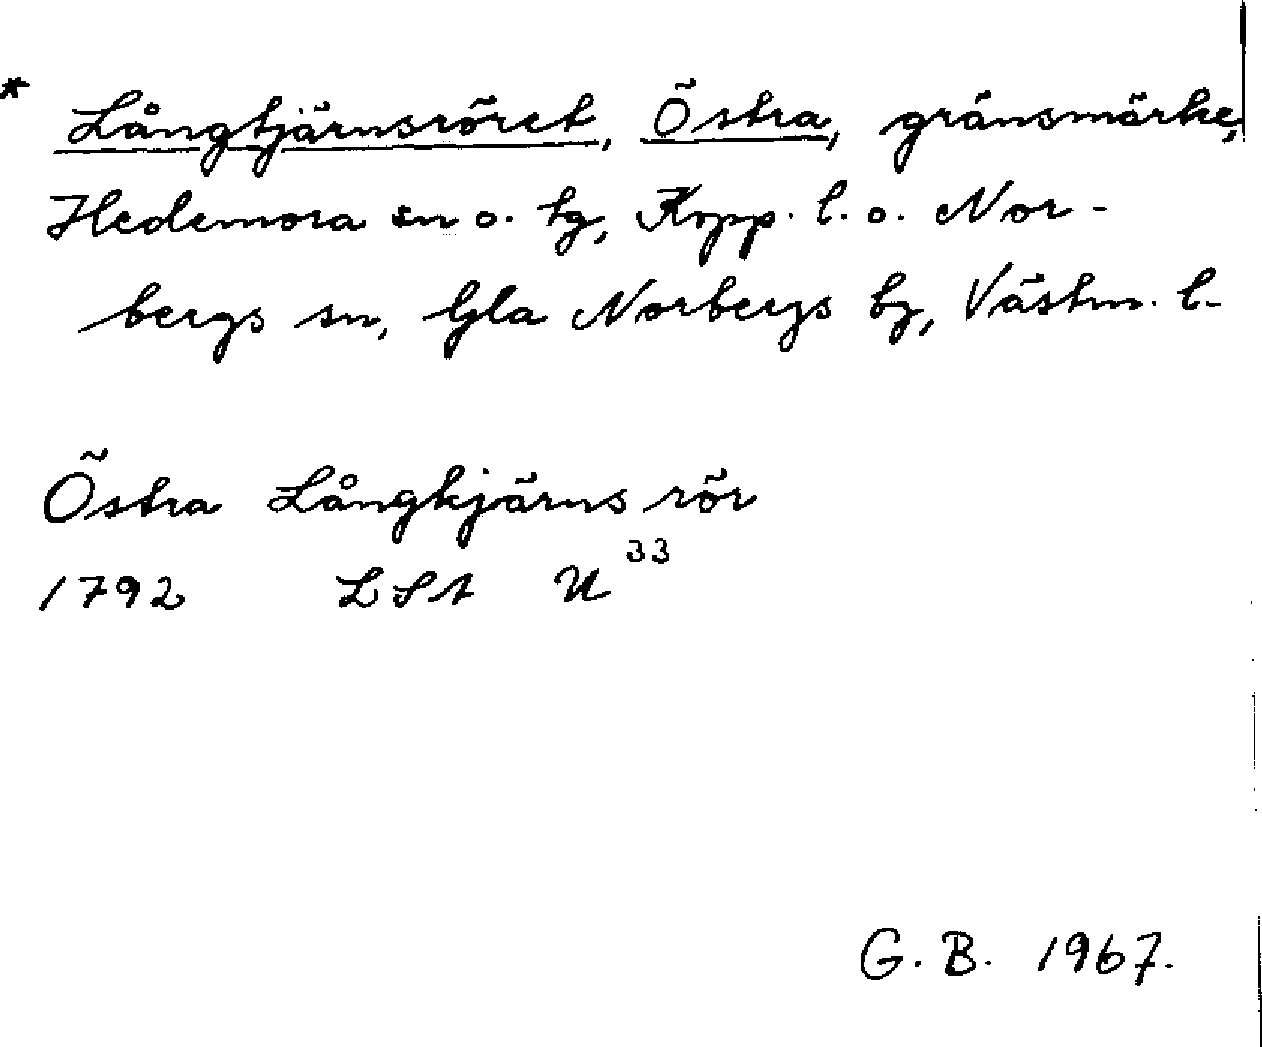 * Långtjärnsröret, Östra, gränsmärke,
Hedemora sn o. tg, Kopp. l. o. Nor-
bergs sn, Gla Norbergs bg, Västm. l.
Östra Långtjärns rör
1792 LSt U 33
G. B. 1967.